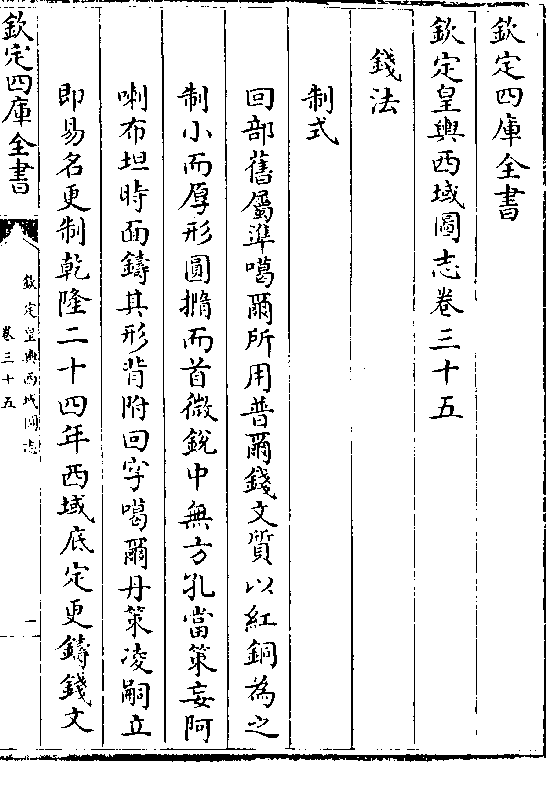 欽定四庫全書
欽定皇輿西域圖志卷三十五
錢法
制式
回部舊屬準噶爾所用普爾錢文質以紅銅為之
制小而厚形圓橢而首微銳中無方孔當策妄阿
喇布坦時面鑄其形背附回字噶爾丹策凌嗣立
即易名更制乾隆二十四年西域底定更鑄錢文
欽定四庫全書
欽定皇輿西域圖志
卷三十五
一